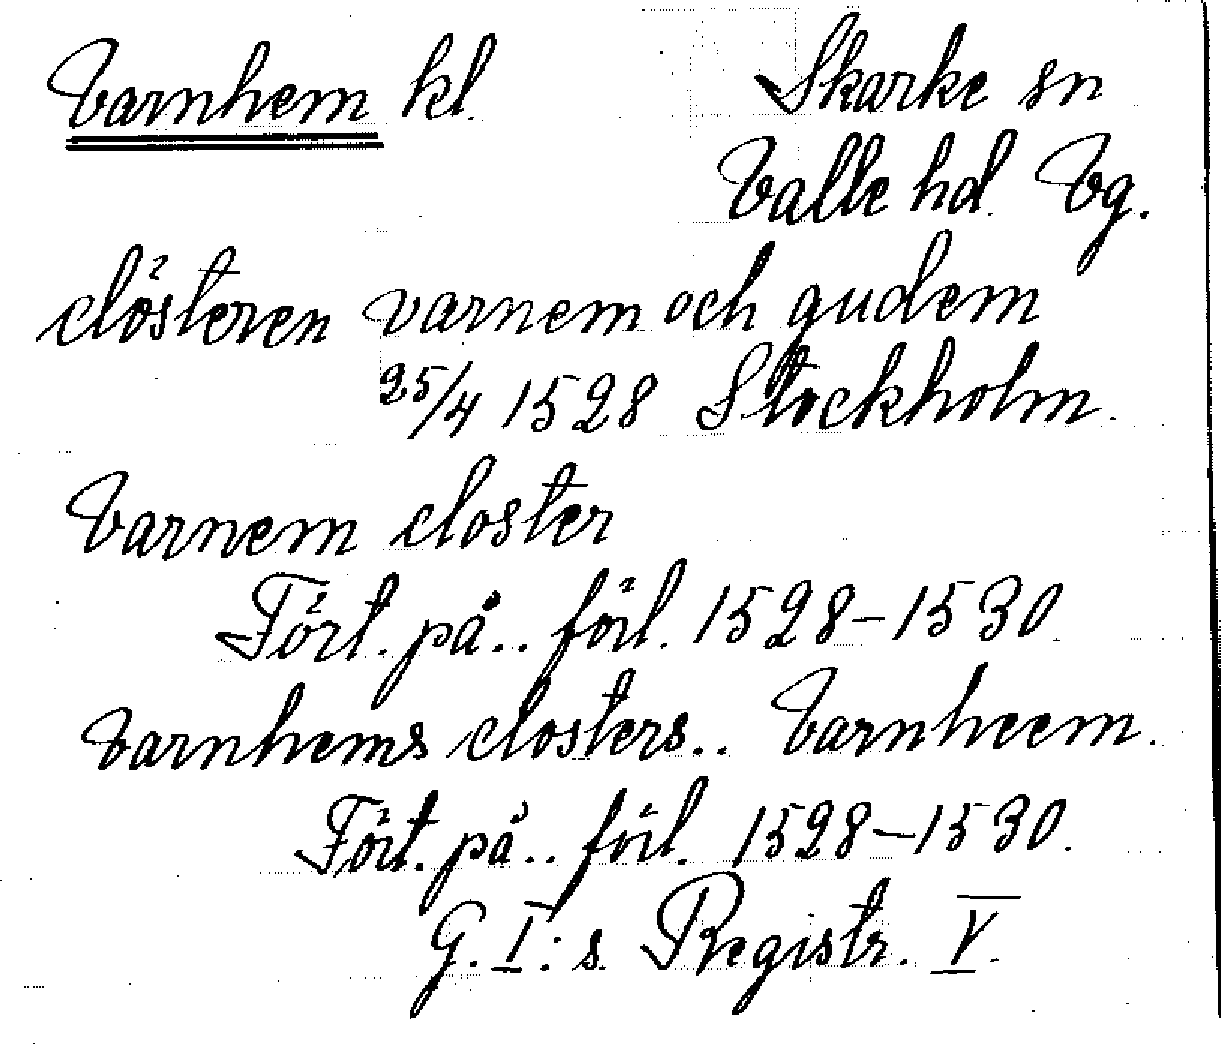 Varnhem kl. Skarke sn
Valle hd. Vg.
clösteren varnem och gudem
25/4 1528 Stockholm.
Varnem closter
Fört. på.. förl. 1528–1530.
Varnhems closters.. Varnheem.
Fört. på.. förl. 1528–1530.
G. I:s Registr. V.